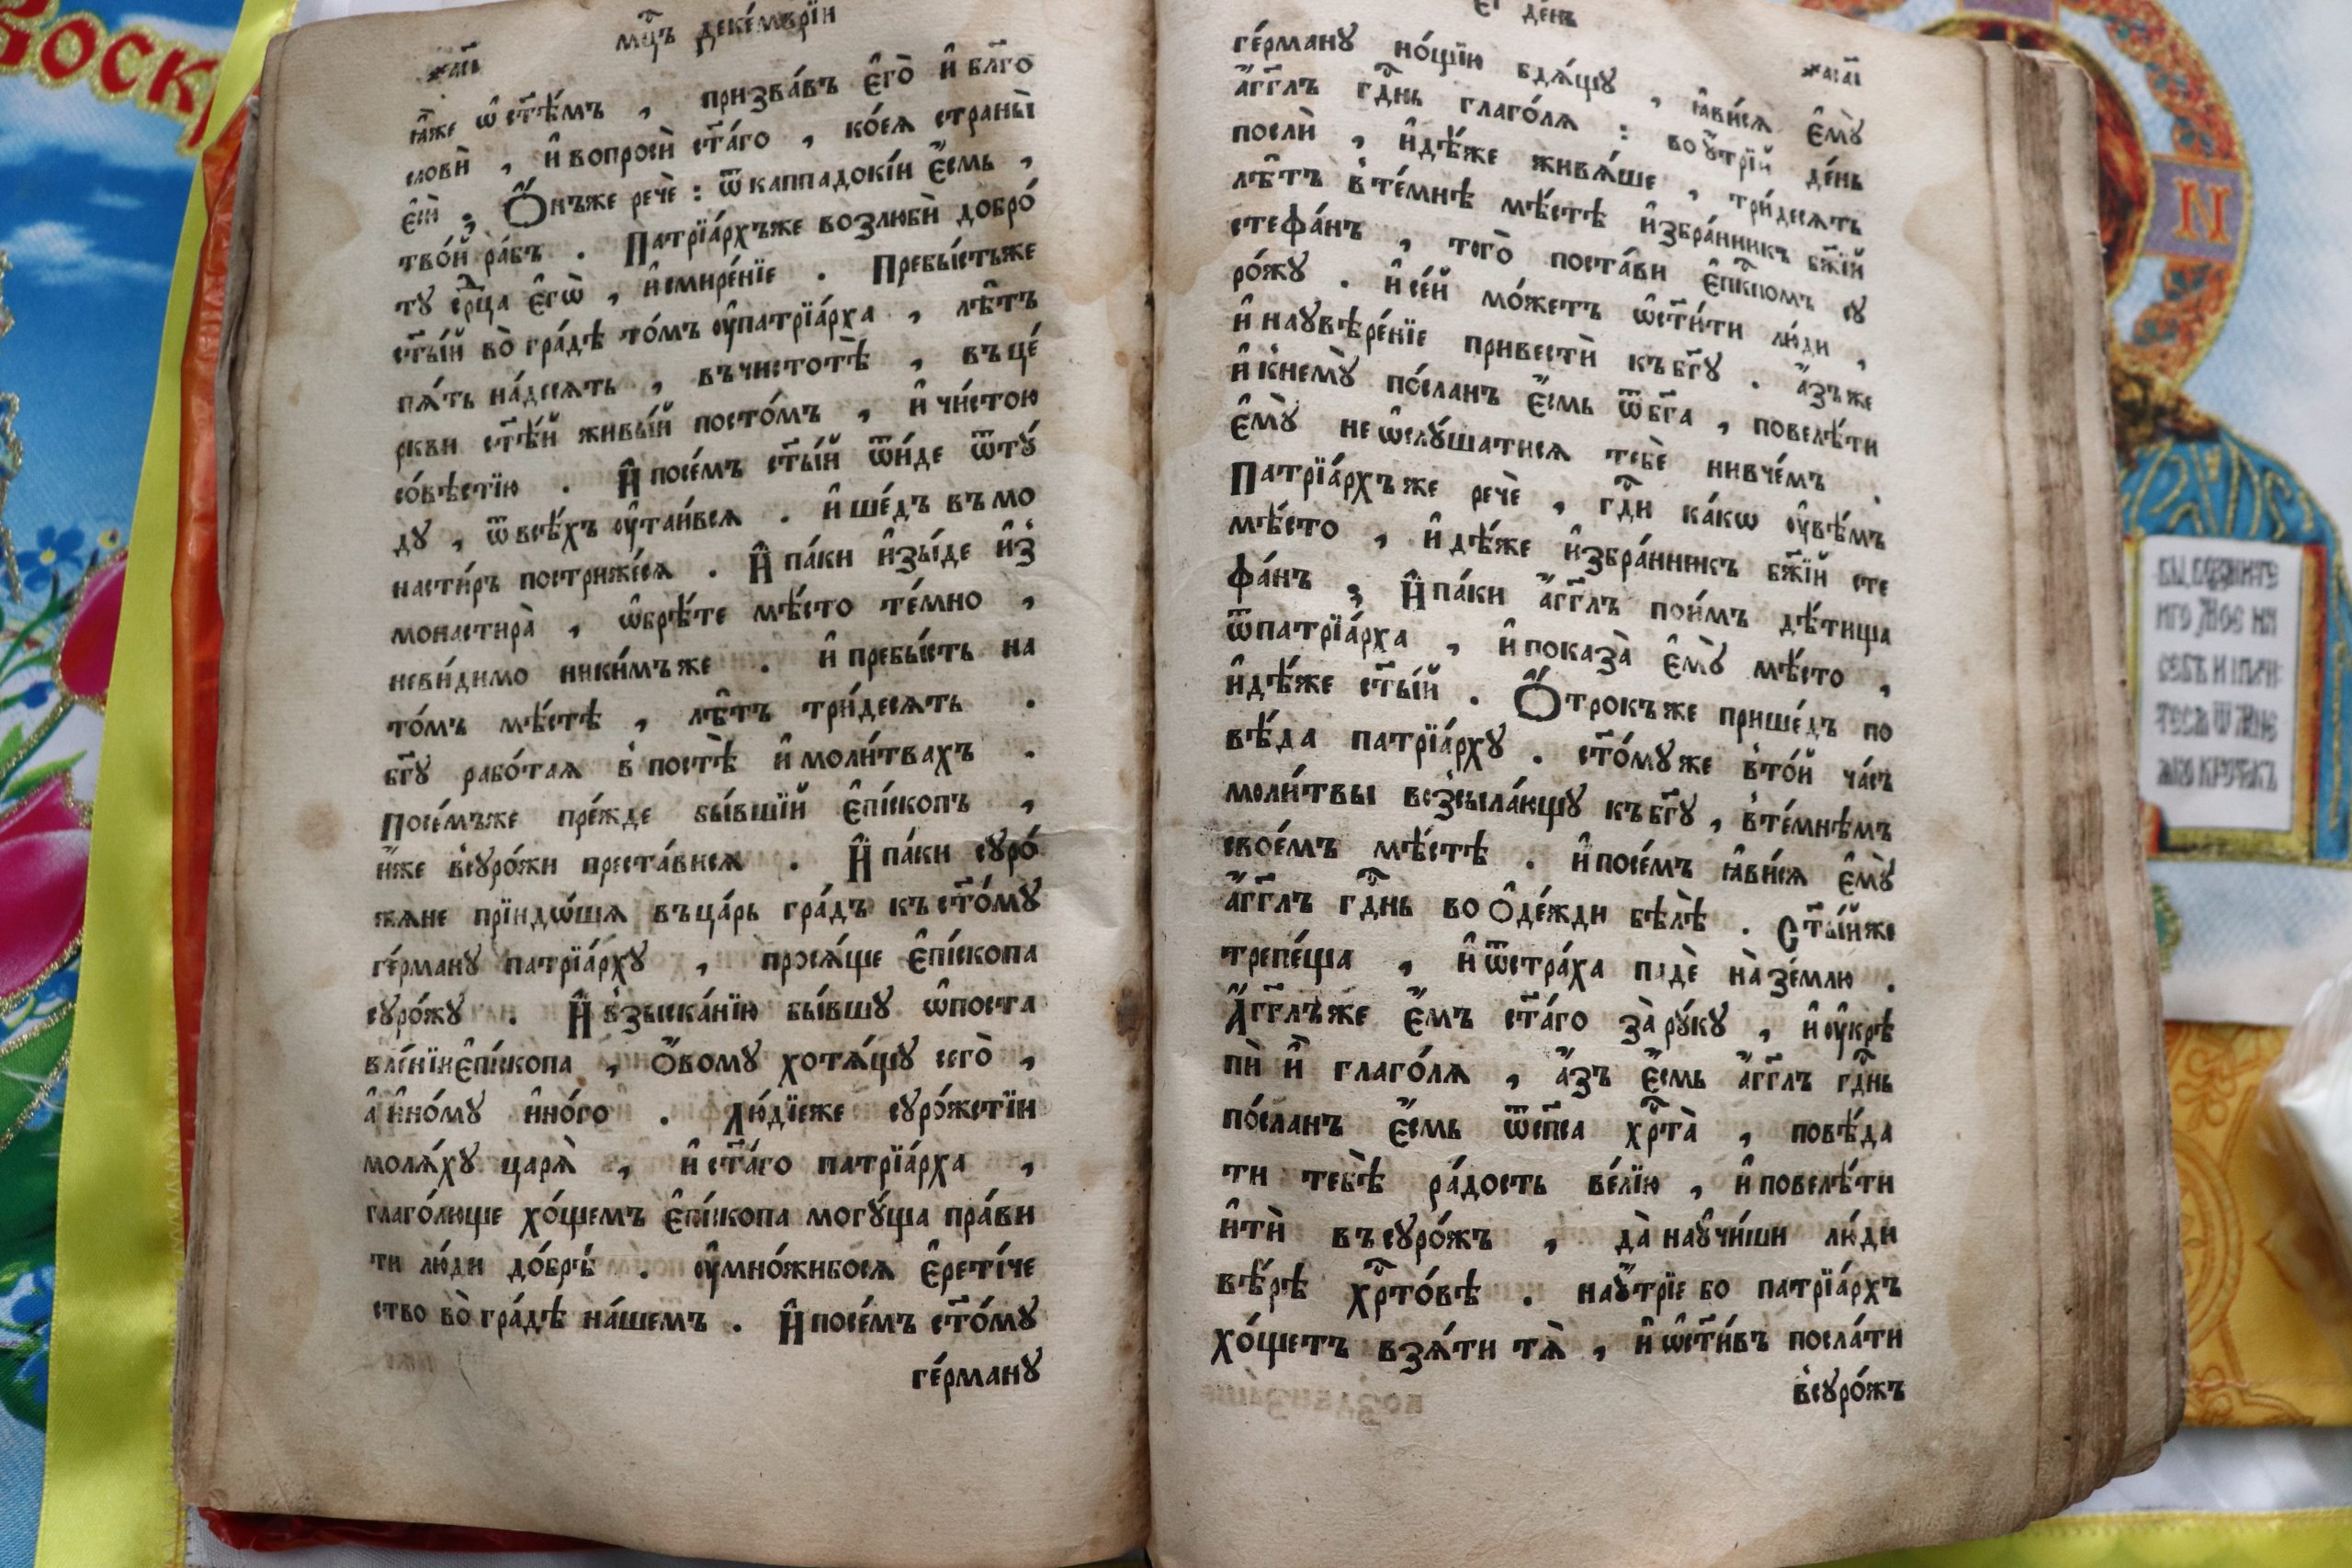 Воск
мц҃ъ декемврїи
ꙗ҆́же ѡ҆ ст҃ѣ́мъ , призва́въ є҆го̀ и҆ бл҃го
словѝ , и҆ вопросѝ ст҃а́го , ко́еѧ страны̀
є҆сѝ ; Ѻ҆́нъже речѐ : ѿ каппадокі́и є҆́смь ,
тво́й ра́бъ . Патрїа́рхъже возлюбѝ добро́
ту се́рⷣца є҆гѡ̀ , и҆ смире́нїе . Пребы́стьже
ст҃ы́й во̀ гра́дѣ то́мъ ᲂу҆ патрїа́рха , лѣ́тъ
пѧ́ть на́десѧть , въ чистотѣ̀ , въ це́
ркви ст҃ѣ́й живы́й посто́мъ , и҆ чи́стою
со́вѣстїю . И҆ посе́мъ ст҃ы́й ѿи́де ѿтꙋ́
дꙋ , ѿ всѣ́хъ ᲂу҆таи́всѧ . и҆ ше́дъ въ мо
насти́ръ пострижесѧ . И҆ па́ки и҆зы́де и҆з̾
монастирѧ̀ , ѡ҆брѣ́те мѣ́сто те́мно ,
неви́димо ники́мъже . и҆ пребы́сть на
то́мъ мѣ́стѣ , лѣ́тъ три́десѧть .
бг҃ꙋ рабо́таѧ в̾ постѣ̀ и҆ моли́твахъ .
Посе́мъже пре́жде бы́вшїй є҆пі́скопъ ,
и҆́же в̾ сꙋро́жи преста́висѧ . И҆ па́ки сꙋро́
жѧне прїидѡ́шѧ въ ца́рь гра́дъ къ ст҃о́мꙋ
ге́рманꙋ патрїа́рхꙋ , просѧ́ще є҆пі́скопа
сꙋро́жꙋ . И҆ взыска́нїю бы́вшꙋ ѡ҆ поста
вле́нїи є҆пі́скопа , ѻ҆́вомꙋ хотѧ́щꙋ сего̀ ,
а҆ и҆но́мꙋ и҆но́го . Лю́дїеже сꙋро́жстїи
молѧ́хꙋ царѧ̀ , и҆ ст҃а́го патрїа́рха ,
глаго́люще хо́щемъ є҆пі́скопа могꙋ́ща пра́ви
ти лю́ди до́брѣ . ᲂу҆мно́жибосѧ є҆рети́че
ство во̀ гра́дѣ на́шемъ . И҆ посе́мъ ст҃о́мꙋ
ге́рманꙋ
є҃і де́нь
ге́рманꙋ но́щїю бдѧ́щꙋ , ꙗ҆ви́сѧ є҆мꙋ̀
а҆́гг҃лъ гдⷭ҇нь глаго́лѧ : во ᲂу҆́трїй де́нь
послѝ , и҆дѣ́же живѧ́ше , три́десѧть
лѣ́тъ в̾ те́мнѣ мѣ́стѣ и҆збра́нникъ бж҃їй
стефа́нъ , того̀ поста́ви є҆пⷭ҇кпомъ сꙋ
ро́жꙋ . и҆ се́й мо́жетъ ѡ҆ст҃и́ти лю́ди ,
и҆ на ᲂувѣре́нїе привестѝ къ бг҃ꙋ . а҆́зъже
и҆ к̾ немꙋ̀ по́сланъ є҆́смь ѿ бг҃а , повелѣ́ти
є҆мꙋ̀ не ѡ҆слꙋ́шатисѧ тебѐ нивче́мъ .
Патрїа́рхъже речѐ , гдⷭ҇и ка́кѡ ᲂу҆вѣ́мъ
мѣ́сто , и҆дѣ́же и҆збра́нникъ бж҃їй сте
фа́нъ ; И҆ па́ки а҆́гг҃лъ пои́мъ дѣ́тища
ѿ патрїа́рха , и҆ показа̀ є҆мꙋ̀ мѣ́сто ,
и҆дѣ́же ст҃ы́й . Ѻ҆́трокъже прише́дъ по
вѣ́да патрїа́рхꙋ . ст҃о́мꙋже в̾ то́й ча́съ
моли́твы возсыла́ющꙋ къ бг҃ꙋ , в̾ те́мнѣмъ
свое́мъ мѣ́стѣ . и҆ посе́мъ ꙗ҆ви́сѧ є҆мꙋ̀
а҆́гг҃лъ гдⷭ҇нь во ѻ҆де́жди бѣ́лѣ . Ст҃ы́йже
трепе́ща , и҆ ѿ стра́ха падѐ на̀ зе́млю .
А҆́гг҃лъже є҆́мъ ст҃а́го за̀ рꙋ́кꙋ , и҆ ᲂу҆крѣ
пѝ и҆̀ глаго́лѧ , а҆́зъ є҆́смь а҆́гг҃лъ гдⷭ҇нь
по́сланъ є҆́смь ѿ сп҃са хрⷭ҇та̀ , повѣ́да
ти тебѣ̀ ра́дость ве́лїю , и҆ повелѣ́ти
и҆тѝ въ сꙋро́жъ , да̀ наꙋчи́ши лю́ди
вѣ́рѣ хрⷭ҇то́вѣ . наꙋ́трїе бо патрїа́рхъ
хо́щетъ взѧ́ти тѧ̀ , и҆ ѡ҆ст҃и́въ посла́ти
в̾ сꙋро́жъ
N